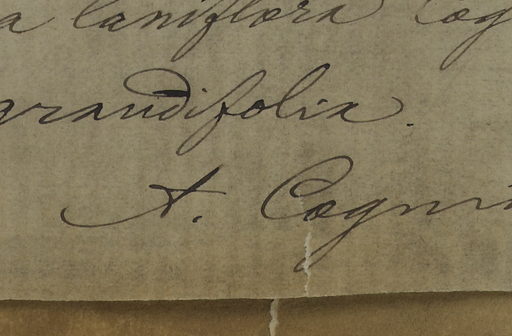 a laniflora Cog
grandifolia.
A. Cogni